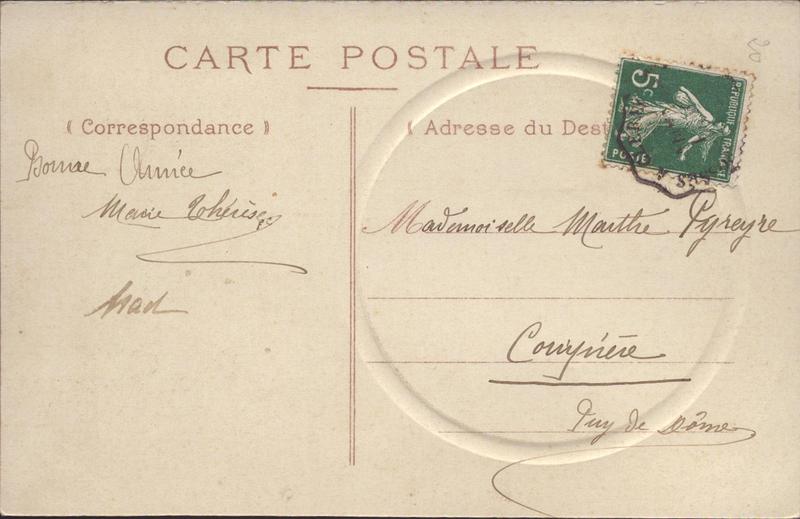 CARTE POSTALE
( Correspondance )
( Adresse du Dest
Bonne Année
Marie Thérèse
Mademoiselle Marthe Pyreyre
Courpière
Puy de Dôme
5c
REPUBLIQUE FRANÇAISE
POSTES
20